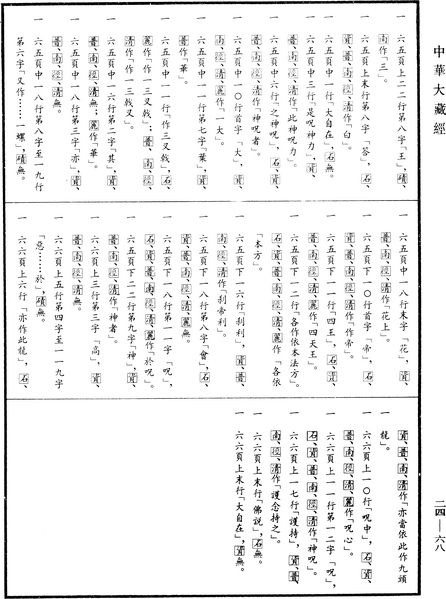 中華大藏經
一 六五頁上二二行第八字「王」，磧、
南作「三」。
一 六五頁上末行第八字「咨」，石、
資、普、南、徑、清作「白」。
一 六五頁中一行「大自在」，石無。
一 六五頁中三行「是呪神力」，資、
普、南、徑、清作「此神呪力」。
一 六五頁中六行「之神呪」，石、資、
普、南、徑、清作「神呪者」。
一 六五頁中一〇行首字「大」，資、
南、徑、清作「一大」。
一 六五頁中一一行第七字「葉」，資、
普作「華」。
一 六五頁中一一行「作三叉戟」，石、
麗作「作一三叉戟」；普、南、徑、
清作「作一戟叉」。
一 六五頁中一六行第二字「其」，資、
普、南、徑、清無；麗作「華」。
一 六五頁中一八行第三字「亦」，資、
普、南、徑、清無。
一 六五頁中一八行第八字至一九行
第六字「又作……一螺」，磧無。
一 六五頁中一八行末字「花」，資、
普、南、徑、清作「花上」。
一 六五頁下一〇行首字「帝」，石、
資、普、南、徑、清作「作帝」。
一 六五頁下一一行「四王」，石、資、
普、南、徑、清、麗作「四天王」。
一 六五頁下一二行「各作依本法方」，
石、資、普、南、徑、清、麗作「各依
本方」。
一 六五頁下一六行「刹利」，資、普、
南、徑、清作「刹帝利」。
一 六五頁下一八行第八字「會」，石、
資無。
一 六五頁下一八行第一一字「呪」，
石、資、普、南、徑、清、麗作「於呪」。
一 六五頁下二二行第九字「神」，資、
普、南、徑、清作「神者」。
一 六六頁上三行第三字「高」，資、
普、南、徑、清無。
一 六六頁上五行第四字至一一九字
「惡……於」，磧無。
一 六六頁上六行「亦作此龍」，石、
資、普、南、清作「亦當依此作九頭
龍」。
一 六六頁上一〇行「呪中」，石、資、
普、南、徑、清、麗作「呪心」。
一 六六頁上一一行第一二字「呪」，
石、資、普、南、徑、清作「神呪」。
一 六六頁上一七行「護持」，資、普、
南、徑、清作「護念持之」。
一 六六頁上末行「佛說」，石無。
一 六六頁上末行「大自在」，資無。
二四—六八